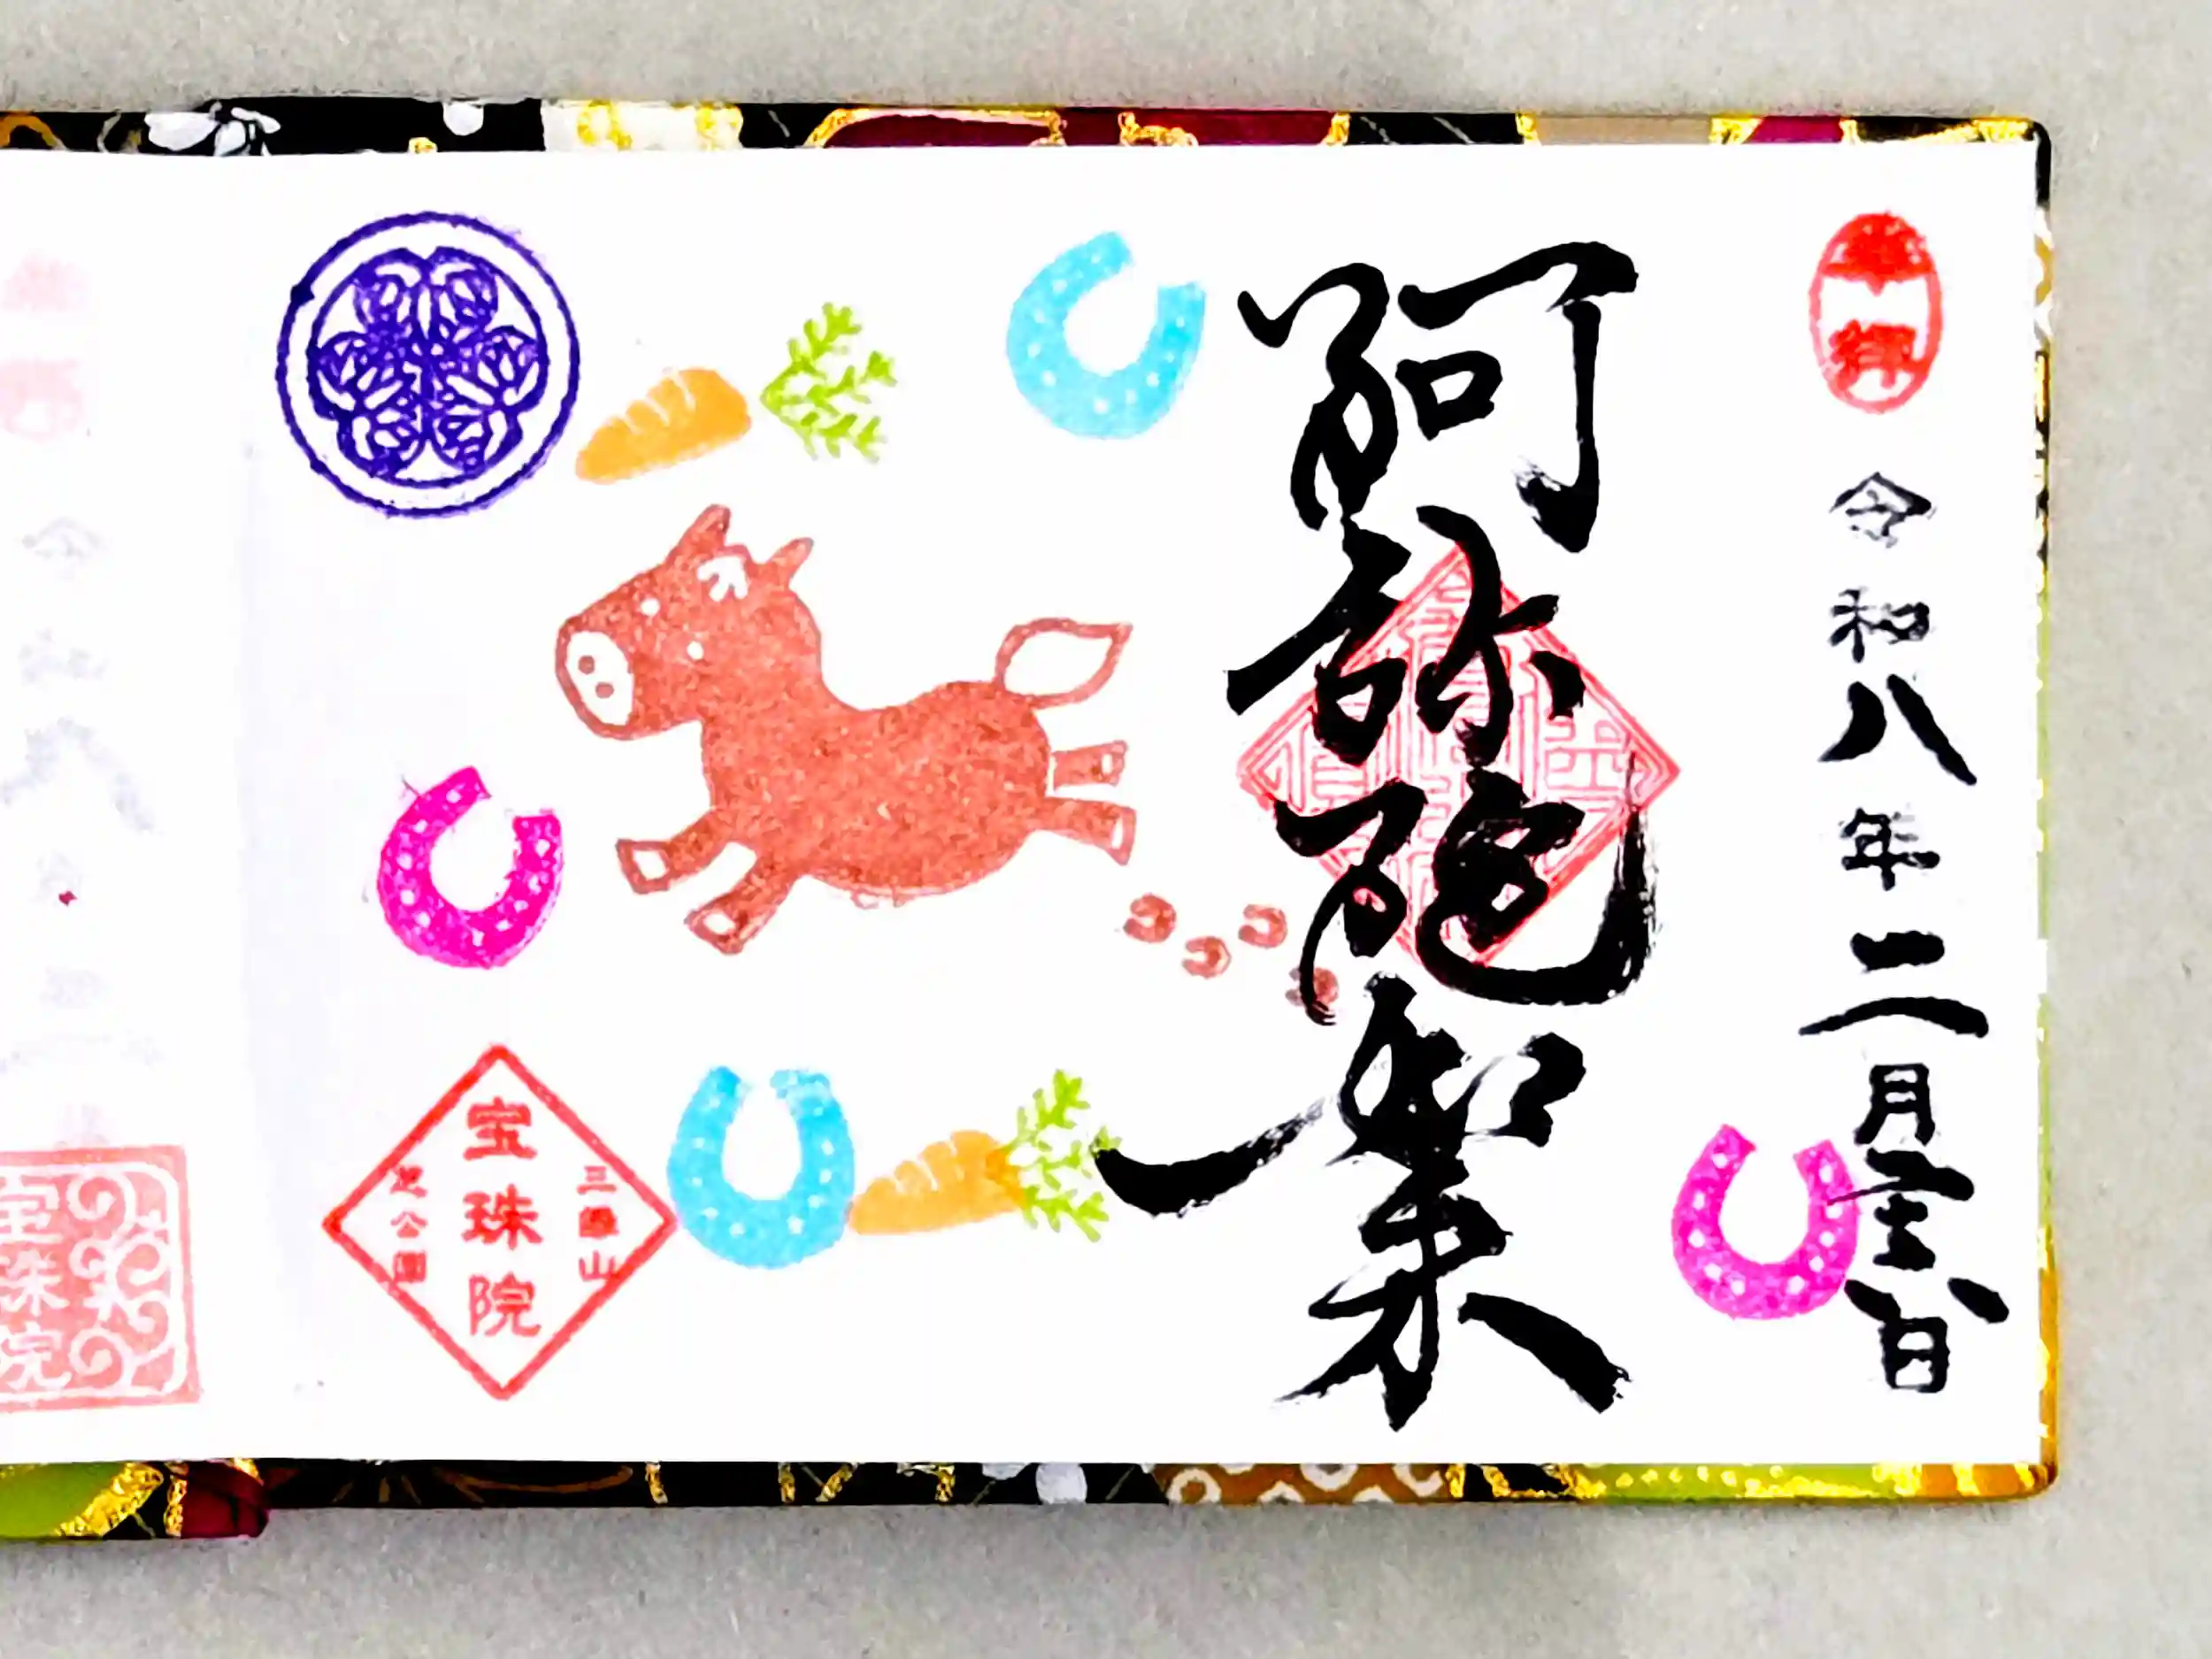 奉拝
令和八年二月二十八日
阿弥陀如来
三縁山
宝珠院
芝公園
宝珠院